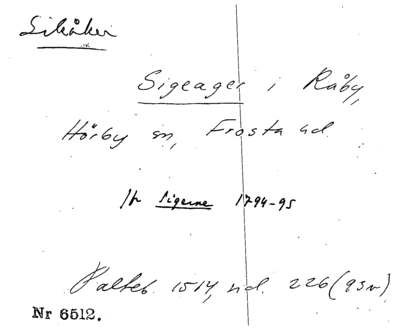 Sikåker
Sigeager i Råby,
Hörby sn, Frosta hd.
Jfr Sigerne 1794-95
Palteb. 1514, sid. 226 (93v)
Nr 6512.